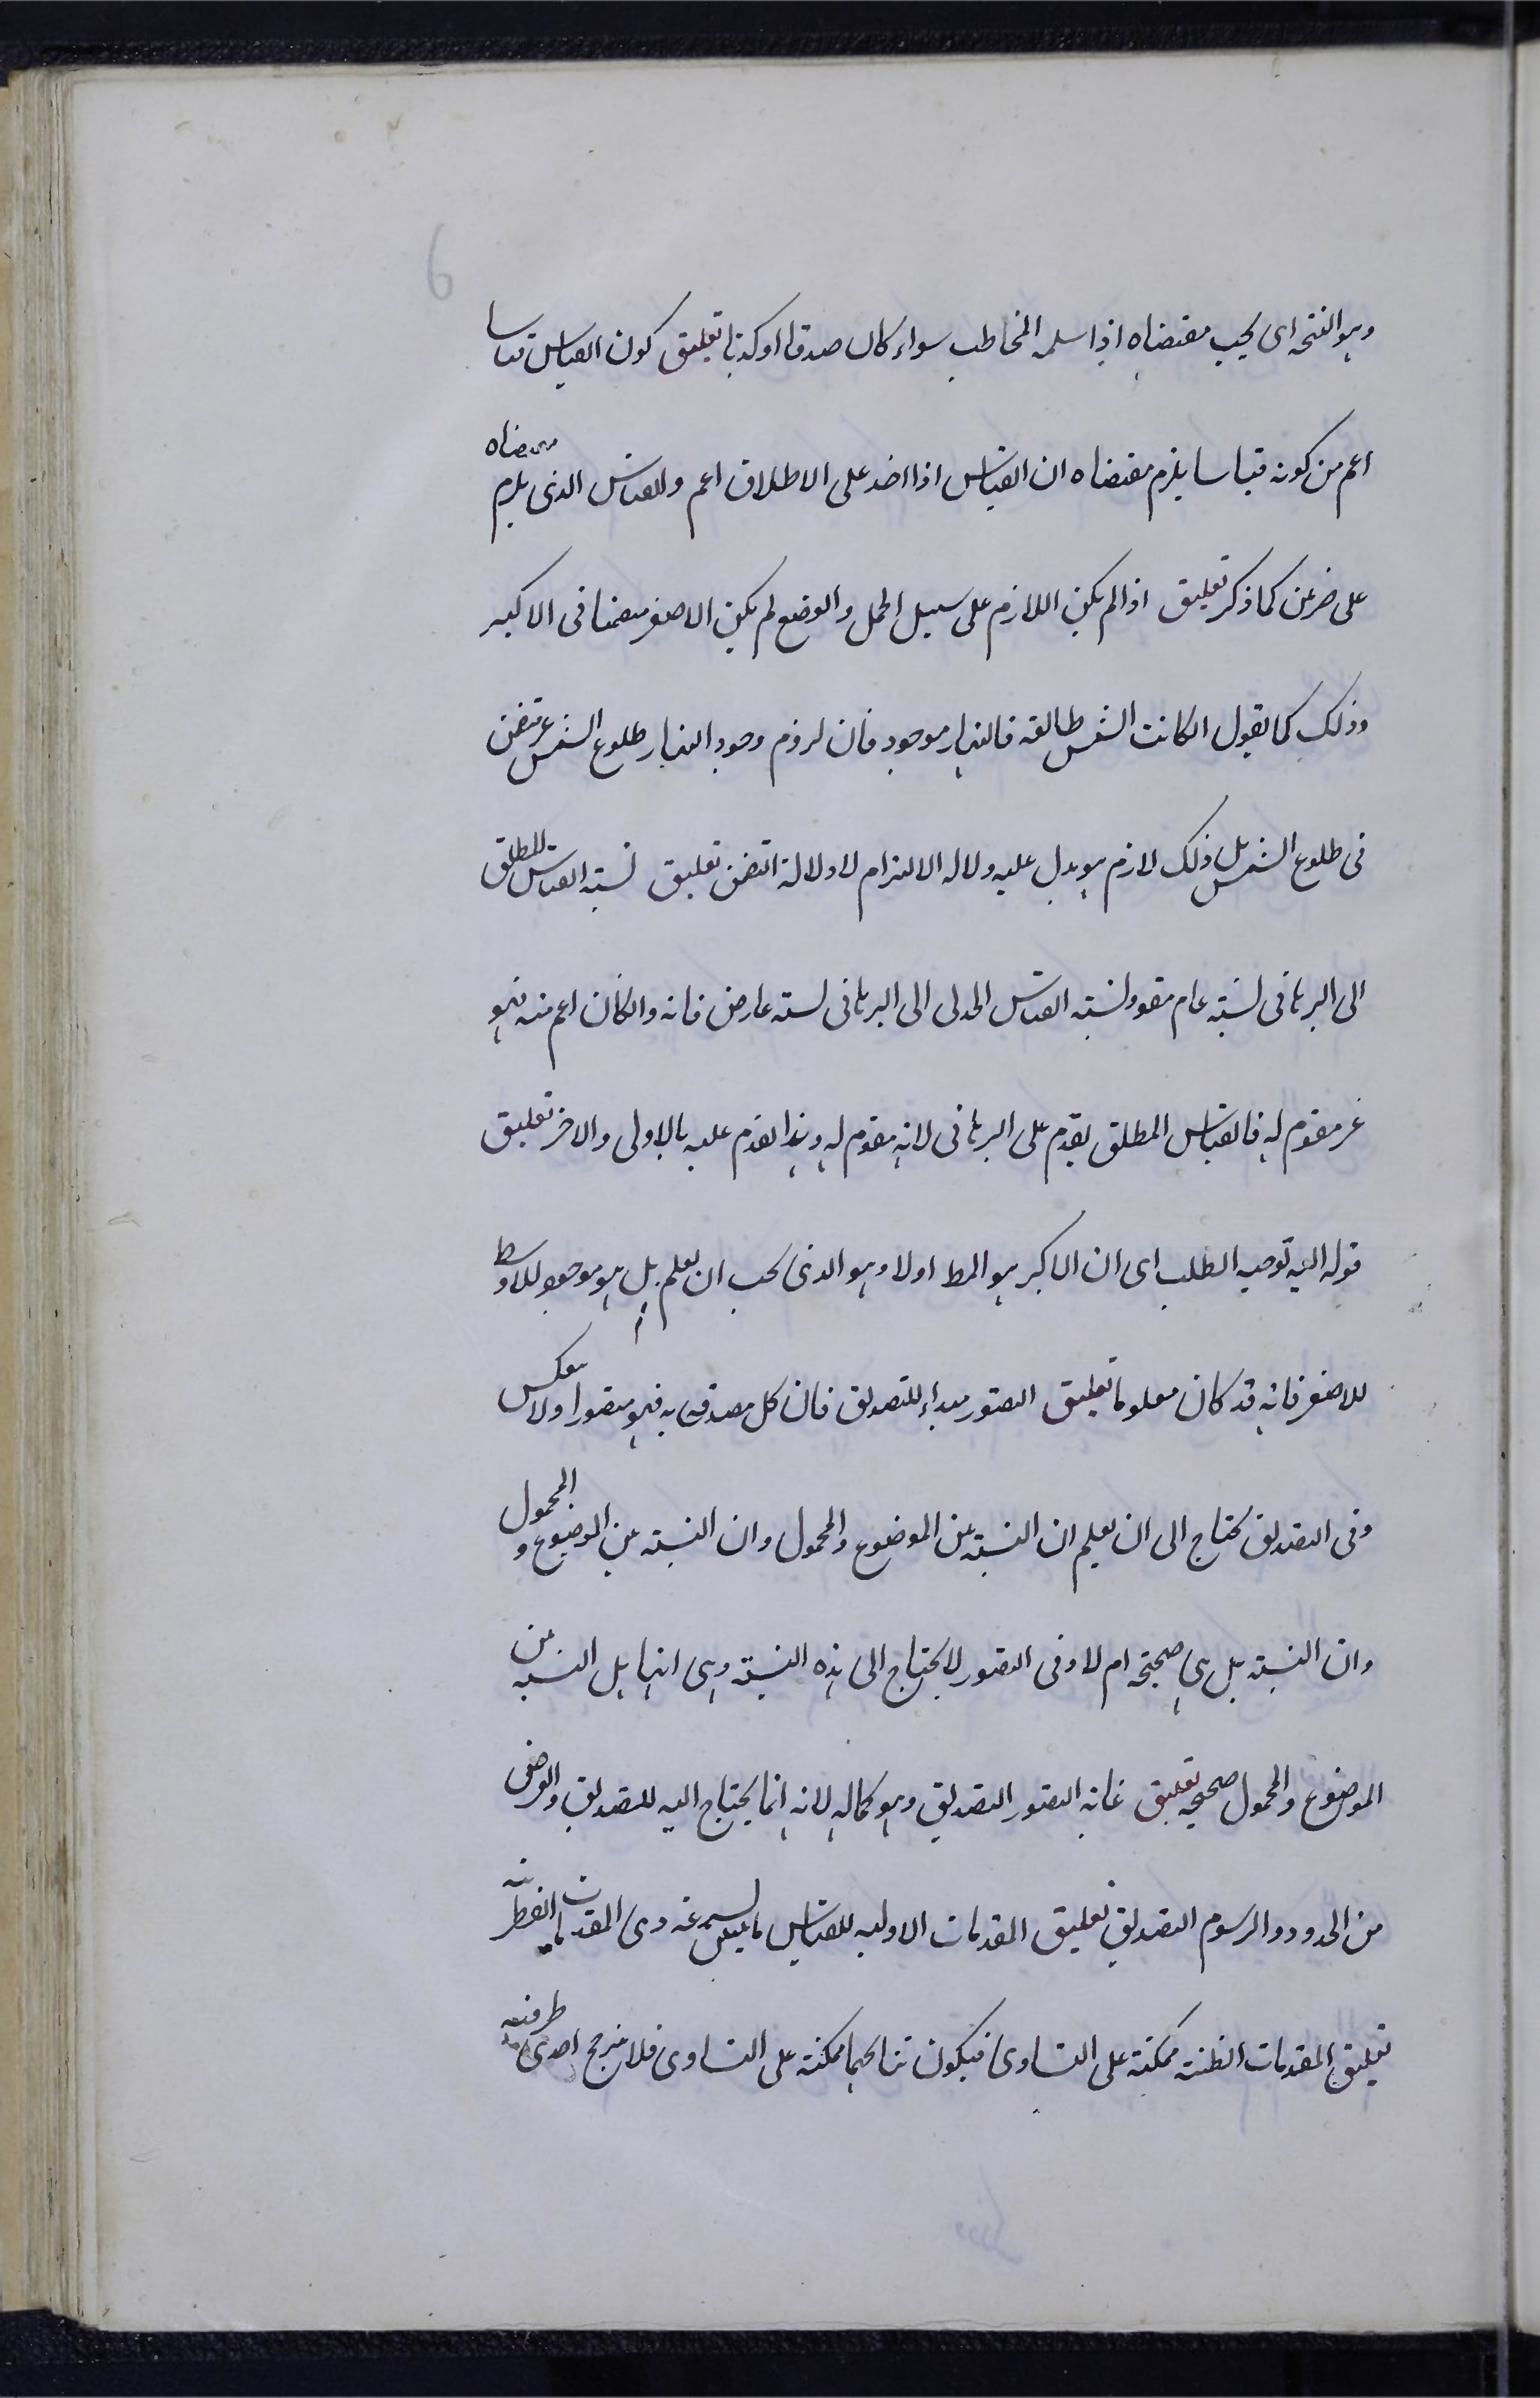 وهو النتيجة اى يجب مقتضاه اذا سلمه المخاطب سواء كان صدقا او كذبا تعليق كون القياس قياسا
اعم من كونه قياسا يلزم مقتضاه ان القياس اذا اخذ على الاطلاق اعم وللقياس الذى يلزم مقتضاه
على ضربين كما ذكر تعليق اذا لم يكن اللازم على سبيل الحمل والوضع لم يكن الاصغر متضمنا فى الاكبر
وذلك كما يقول ان كانت الشمس طالعة فالنهار موجود فان لزوم وجود النهار طلوع الشمس غير متضمن
فى طلوع الشمس بل ذلك لازم هو يدل عليه دلالة الالتزام لا دلالة التضمن تعليق نسبة القياس المطلق
الى البرهانى نسبة عام مقوم ونسبة القياس الجدلى الى البرهانى نسبة عارض فانه وان كان اعم منه فهو
غير مقوم له فالقياس المطلق يقدم على البرهانى لانه مقوم له وهذا يقدم عليه بالاولى والاخر تعليق
قوله اليه توجيه الطلب اى ان الاكبر هو المط اولا وهو الذى يجب ان يعلم هل هو موجود للاوسط
للاصغر فانه قد كان معلوما تعليق التصور مبداء للتصديق فان كل مصدق به فهو متصور اولا ولا ينعكس
وفى التصديق يحتاج الى ان يعلم ان النسبة بين الموضوع والمحمول وان النسبة بين الموضوع والمحمول
وان النسبة هل هى صحيحة ام لا وفى التصور لا يحتاج الى هذه النسبة وهى انها هل النسبة بين
الموضوع والمحمول صحيحة تعليق غاية التصور التصديق وهو كماله لانه انما يحتاج اليه للتصديق والغرض
من الحدود والرسوم التصديق تعليق المقدمات الاولية للقياس ما ليس عنه وهى المقدمات الفطرية
تعليق المقدمات الظنية ممكنة على التساوى فيكون نتائجها ممكنة على التساوى فلا يترجح احدى طرفيه